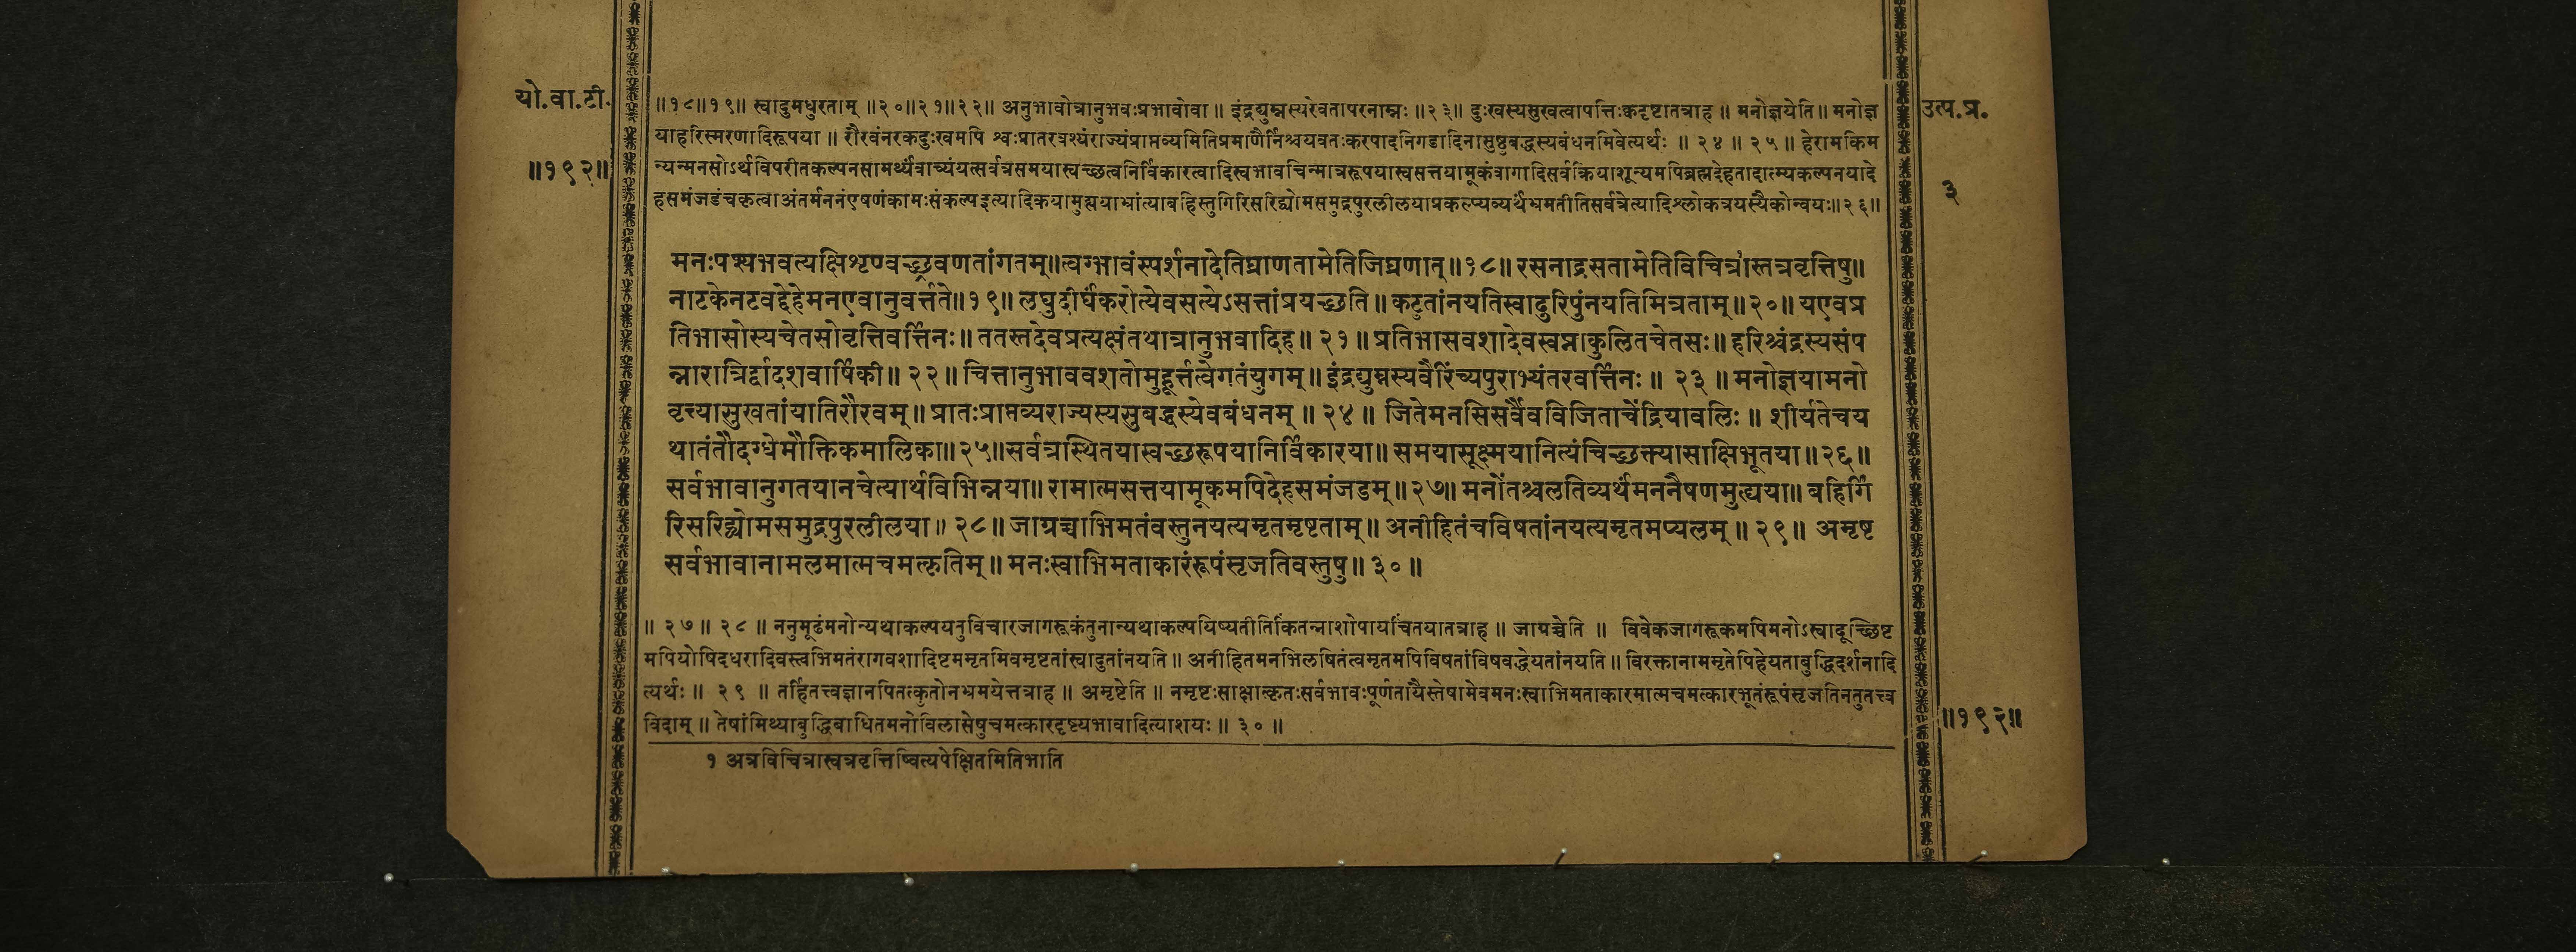 यो.वा.टी.
॥१९२॥
॥१८॥१९॥ स्वादुमधुरताम् ॥२०॥२१॥२२॥ अनुभावोत्रानुभवःप्रभावोवा ॥ इंद्रद्युम्नस्यरेवतापरनाम्नः ॥२३॥ दुःखस्यसुखत्वापत्तिःक्वदृष्टातत्राह ॥ मनोज्ञयेति ॥ मनोज्ञ
याहरिस्मरणादिरूपया ॥ रौरवंनरकदुःखमपि श्वःप्रातरवश्यंराज्यंप्राप्तव्यमितिप्रमाणैर्निश्चयवतःकरपादनिगडादिनासुष्ठुबद्धस्यबंधनमिवेत्यर्थः ॥ २४ ॥ २५ ॥ हेरामकिम
न्यन्मनसोऽर्थविपरीतकल्पनसामर्थ्यंवाच्यंयत्सर्वत्रसमयास्वच्छत्वनिर्विकारत्वादिस्वभावचिन्मात्ररूपयास्वसत्तयामूकंवागादिसर्वक्रियाशून्यमपिब्रह्मदेहतादात्म्यकल्पनयादे
हसमंजडंचकृत्वाअंतर्मननंएषणंकामःसंकल्पइत्यादिकयामुह्ययाभ्रांत्याबहिस्तुगिरिसरिद्व्योमसमुद्रपुरलीलयाप्रकल्प्यव्यर्थंभ्रमतीतिसर्वत्रेत्यादिश्लोकत्रयस्यैकोन्वयः॥२६॥
मनःपश्यभवत्यक्षिशृण्वच्छ्रवणतांगतम्॥त्वग्भावंस्पर्शनादेतिघ्राणतामेतिजिघ्रणात्॥१८॥ रसनाद्रसतामेतिविचित्रा१स्तत्रवृत्तिषु॥
नाटकेनटवद्देहेमनएवानुवर्त्तते॥१९॥ लघुदीर्घंकरोत्येवसत्येऽसत्तांप्रयच्छति॥ कटुतांनयतिस्वादुरिपुंनयतिमित्रताम्॥२०॥ यएवप्र
तिभासोस्यचेतसोवृत्तिवर्त्तिनः॥ ततस्तदेवप्रत्यक्षंतथात्रानुभवादिह॥ २१ ॥ प्रतिभासवशादेवस्वप्नाकुलितचेतसः॥ हरिश्चंद्रस्यसंप
न्नारात्रिर्द्वादशवार्षिकी॥ २२॥ चित्तानुभाववशतोमुहूर्त्तत्वेगतंयुगम्॥इंद्रद्युम्नस्यवैरिंच्यपुराभ्यंतरवर्त्तिनः॥ २३ ॥ मनोज्ञयामनो
वृत्त्यासुखतांयातिरौरवम्॥ प्रातःप्राप्तव्यराज्यस्यसुबद्धस्येवबंधनम् ॥ २४ ॥ जितेमनसिसर्वैवविजिताचेंद्रियावलिः॥ शीर्यतेचय
थातंतौदग्धेमौक्तिकमालिका॥२५॥सर्वत्रस्थितयास्वच्छरूपयानिर्विकारया॥ समयासूक्ष्मयानित्यंचिच्छक्त्यासाक्षिभूतया॥२६॥
सर्वभावानुगतयानचेत्यार्थविभिन्नया॥ रामात्मसत्तयामूकमपिदेहसमंजडम्॥२७॥ मनोंतश्चलतिव्यर्थंमननैषणमुह्यया॥ बहिर्गि
रिसरिद्व्योमसमुद्रपुरलीलया॥ २८॥ जाग्रच्चाभिमतंवस्तुनयत्यमृतमृष्टताम्॥ अनीहितंचविषतांनयत्यमृतमप्यलम्॥ २९॥ अमृष्ट
सर्वभावानामलमात्मचमत्कृतिम्॥ मनःस्वाभिमताकारंरूपंसृजतिवस्तुषु॥ ३० ॥
॥ २७ ॥ २८ ॥ ननुमूढंमनोन्यथाकल्पयतुविचारजागरूकंतुनान्यथाकल्पयिष्यतीतिकिंतन्नाशोपायचिंतयातत्राह ॥ जाग्रच्चेति ॥ विवेकजागरूकमपिमनोऽस्वादूच्छिष्ट
मपियोषिदधरादिवस्त्वभिमतंरागवशादिष्टममृतमिवमृष्टतांस्वादुतांनयति ॥ अनीहितमनभिलषितंत्वमृतमपिविषतांविषवद्धेयतांनयति ॥ विरक्तानाममृतेपिहेयताबुद्धिदर्शनादि
त्यर्थः ॥ २९ ॥ तर्हितत्त्वज्ञानपितत्कुतोनभ्रमयेत्तत्राह ॥ अमृष्टेति ॥ नमृष्टःसाक्षात्कृतःसर्वभावःपूर्णतायैस्तेषामेवमनःस्वाभिमताकारमात्मचमत्कारभूतंरूपंसृजतिनतुतत्त्व
विदाम् ॥ तेषांमिथ्याबुद्धिबाधितमनोविलासेषुचमत्कारदृष्ट्यभावादित्याशयः ॥ ३० ॥
१ अत्रविचित्रास्वत्रवृत्तिष्वित्यपेक्षितमितिभाति
उत्प.प्र.
३
॥१९२॥